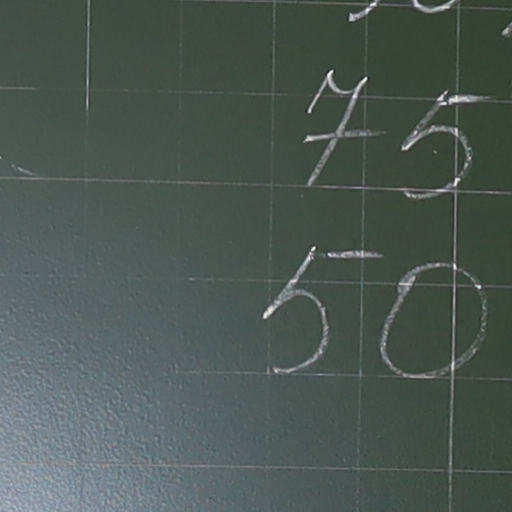 75
50